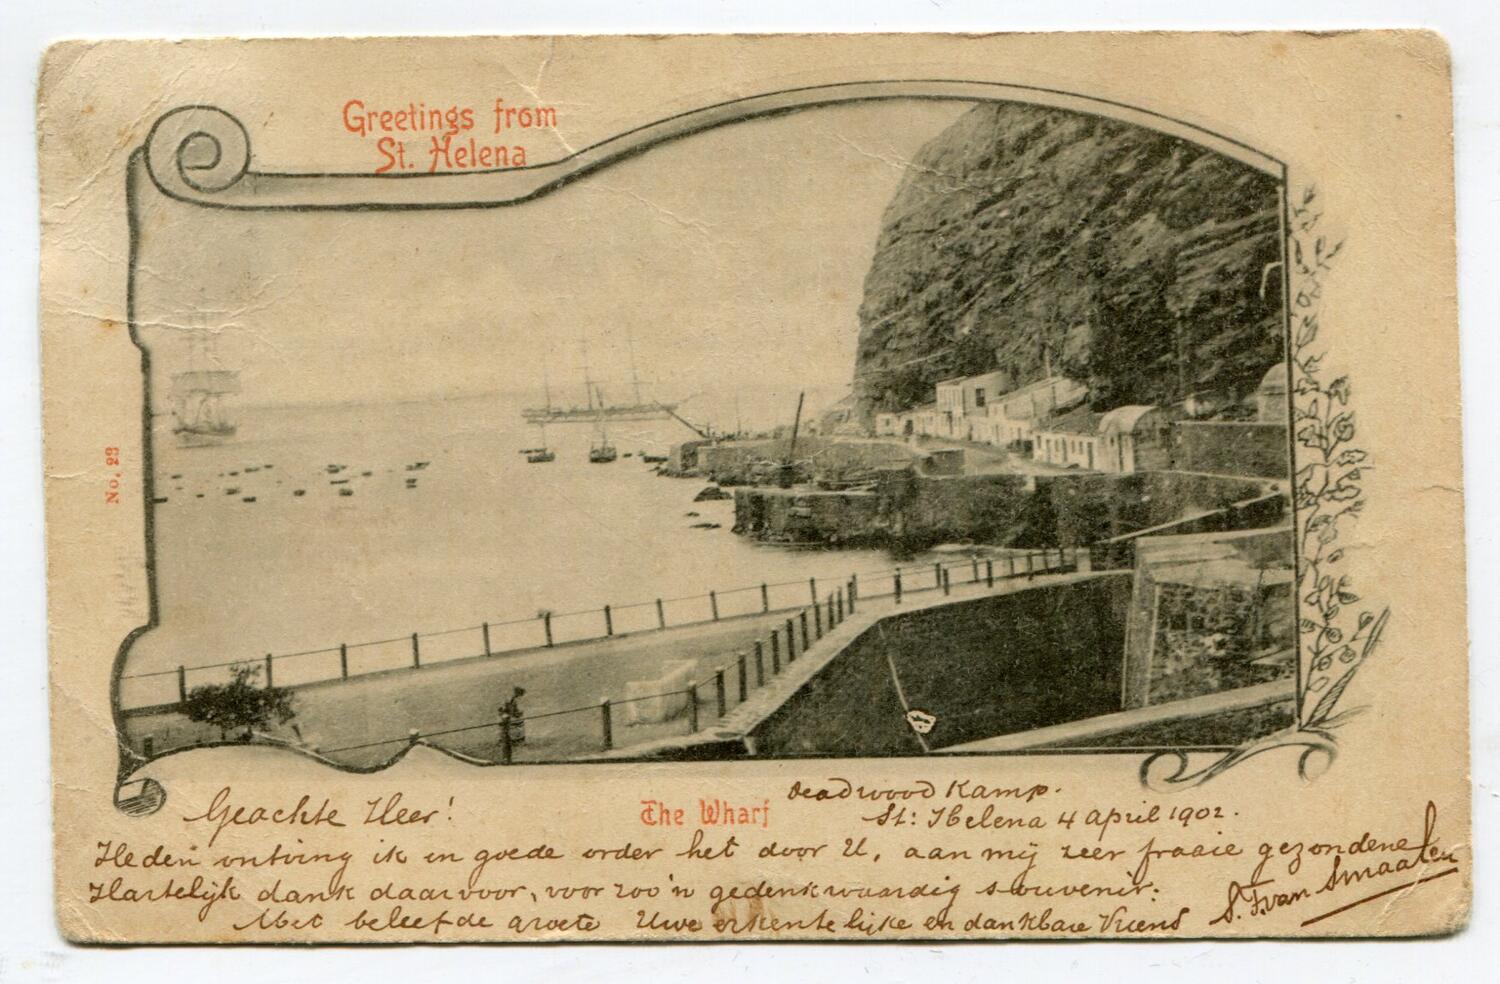 Greetings from
St. Helena
No. 23
The Wharf
Deadwood Kamp.
St: Helena 4 april 1902.
Geachte Heer!
Heden ontving ik in goede order het door U, aan mij zeer fraaie gezondene
Hartelijk dank daarvoor, voor zoo'n gedenkwaardig souvenir.
Met beleefde groete Uwe erkentelijke en dankbare Vriend
S. F. van Smaalen